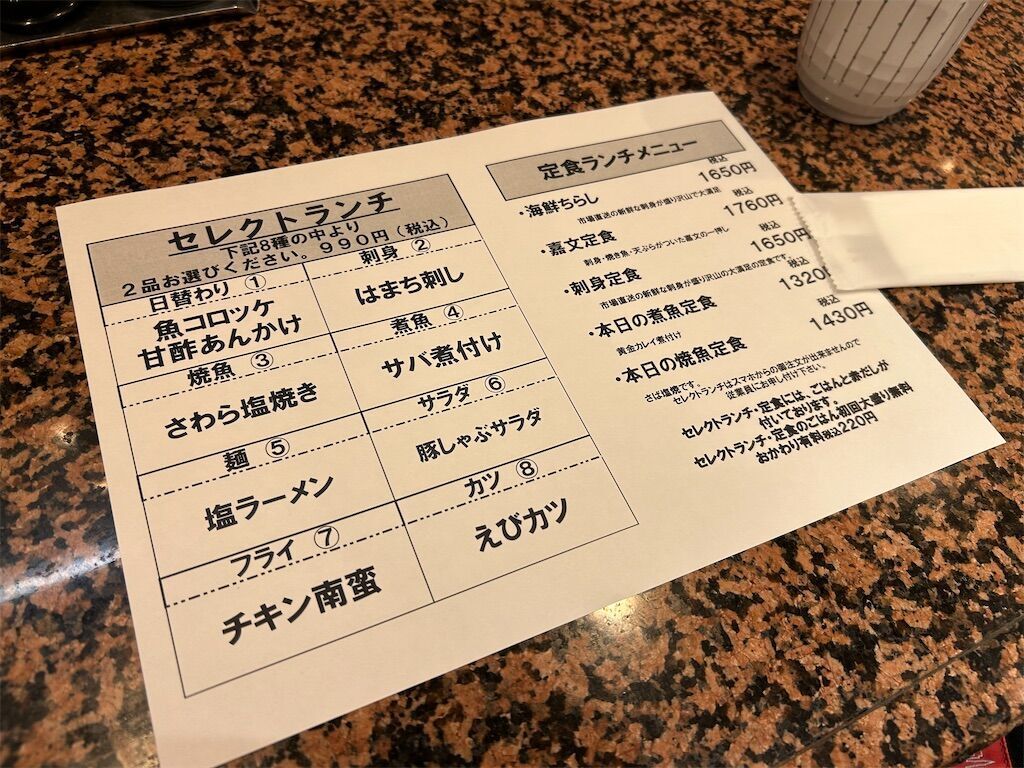 セレクトランチ
下記8種の中より
2品お選びください。990円（税込）
日替わり ①
魚コロッケ
甘酢あんかけ
刺身 ②
はまち刺し
焼魚 ③
さわら塩焼き
煮魚 ④
サバ煮付け
麺 ⑤
塩ラーメン
サラダ ⑥
豚しゃぶサラダ
フライ ⑦
チキン南蛮
カツ ⑧
えびカツ
定食ランチメニュー
・海鮮ちらし 税込1650円
市場直送の新鮮な刺身が盛り沢山で大満足
・嘉文定食 税込1760円
刺身・焼き魚・天ぷらがついた嘉文の一押し
・刺身定食 税込1650円
市場直送の新鮮な刺身が盛り沢山の大満足の定食です。
・本日の煮魚定食 税込1320
黄金カレイ煮付け
・本日の焼魚定食 税込1430円
さば塩焼です。
セレクトランチはスマホからの御注文が出来ませんので
従業員にお申し付け下さい。
セレクトランチ・定食には、ごはんと素だしが
付いております。
セレクトランチ・定食のごはん初回大盛り無料
おかわり有料税込220円